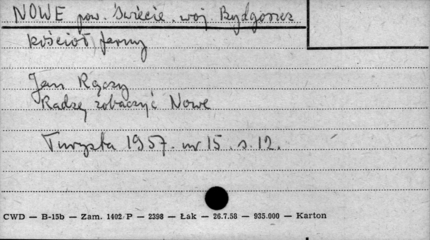 NOWE pow. Świecie woj. Bydgoszcz
kościół farny
Jan Rączy
Radzę zobaczyć Nowe
Turysta 1957. nr 15. s. 12.
CWD — B-15b — Zam. 1402/P — 2398 — Łak — 26.7.58 — 935.000 — Karton